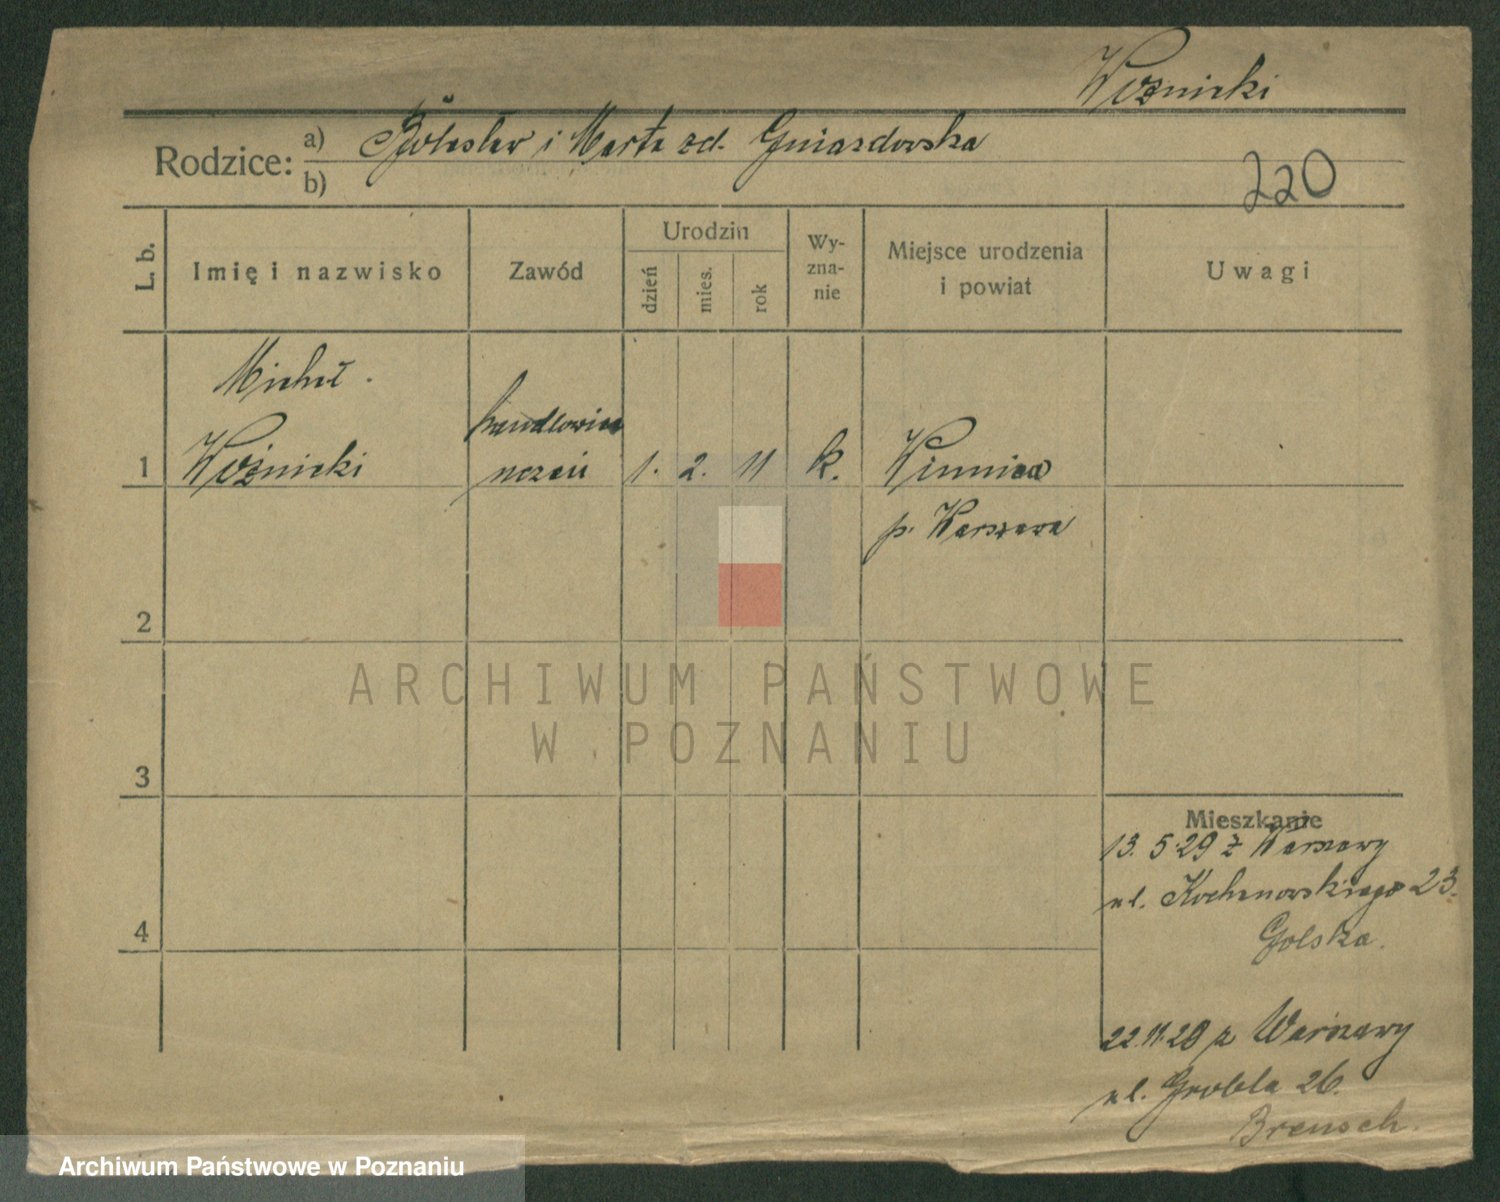 Woźnicki
Rodzice: a) Bolesław i Marta zd. Gniazdowska
b)
220
L. b.
Imię i nazwisko
Zawód
Urodzin
dzień
mies.
rok
Wy-
zna-
nie
Miejsce urodzenia
i powiat
Uwagi
Michał.
handlowiec
1 Woźnicki uczeń 1. 2. 11 k. Winnica
p. Warszawa
2
3
4
ARCHIWUM PAŃSTWOWE
W POZNANIU
Mieszkanie
13. 5.29 z Warszawy
ul. Kochanowskiego 23.
Golska.
22.11.29 z Warszawy
ul. Grobla 26.
Brensch.
Archiwum Państwowe w Poznaniu